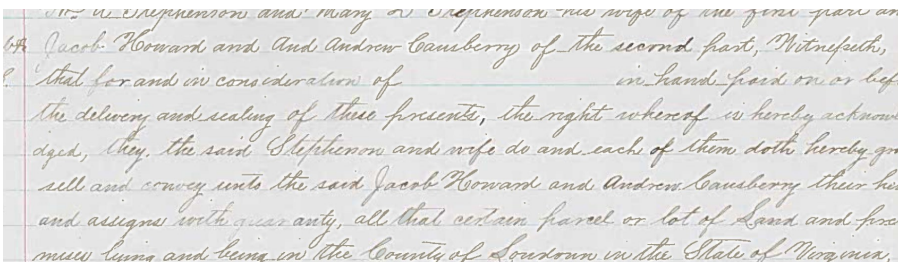 Wm A Stephenson and Mary L Stephenson his wife of the first part an
Jacob Howard and And Andrew Causberry of the second part, Witnesseth,
that for and in consideration of in hand paid on or bef
the delivery and sealing of these presents, the right whereof is hereby acknowl
dged, they. the said Stephenson and wife do and each of them doth hereby gra
sell and convey unto the said Jacob Howard and Andrew Causberry their hei
and assigns with guaranty, all that certain parcel or lot of Land and pre
mises lying and being in the County of Loudoun in the State of Virginia,